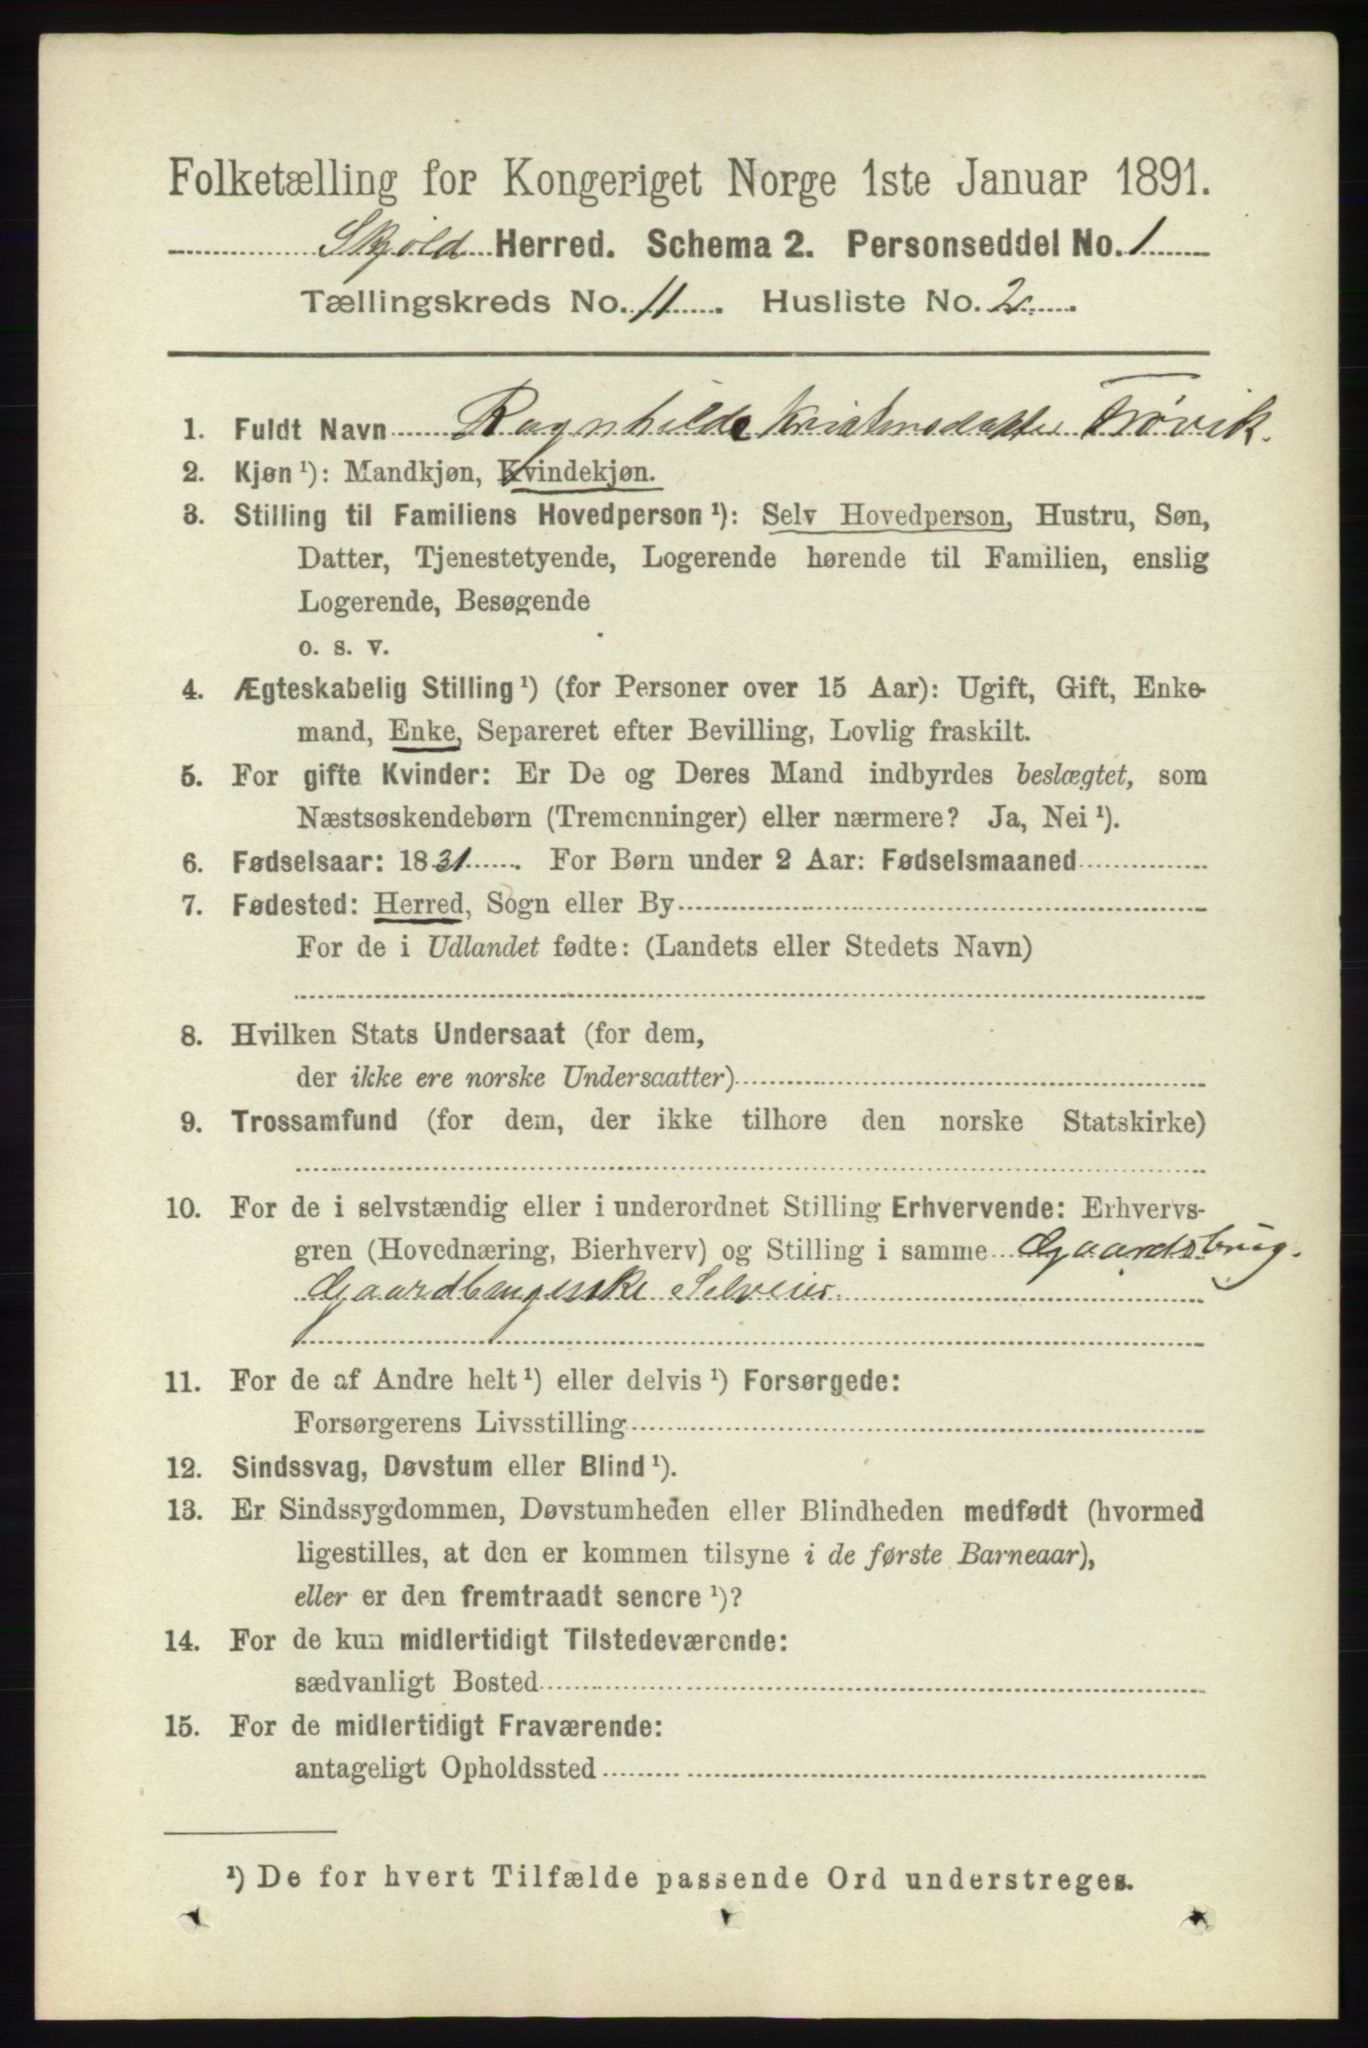 Folketælling for Kongeriget Norge 1ste Januar 1891.
Skjold Herred. Schema 2. Personseddel No. 1
Tællingskreds No. 11. Husliste No. 2.
1. Fuldt Navn Ragnhilde Kristensdatter Trøvik.
2. Kjøn ¹): Mandkjøn, Kvindekjøn.
3. Stilling til Familiens Hovedperson ¹): Selv Hovedperson, Hustru, Søn,
Datter, Tjenestetyende, Logerende hørende til Familien, enslig
Logerende, Besøgende
o. s. v.
4. Ægteskabelig Stilling ¹) (for Personer over 15 Aar): Ugift, Gift, Enke-
mand, Enke, Separeret efter Bevilling, Lovlig fraskilt.
5. For gifte Kvinder: Er De og Deres Mand indbyrdes beslægtet, som
Næstsøskendebørn (Tremenninger) eller nærmere? Ja, Nei ¹).
6. Fødselsaar: 1831. For Børn under 2 Aar: Fødselsmaaned
7. Fødested: Herred, Sogn eller By
For de i Udlandet fødte: (Landets eller Stedets Navn)
8. Hvilken Stats Undersaat (for dem,
der ikke ere norske Undersaatter)
9. Trossamfund (for dem, der ikke tilhore den norske Statskirke)
10. For de i selvstændig eller i underordnet Stilling Erhvervende: Erhvervs-
gren (Hovednæring, Bierhverv) og Stilling i samme Gaardsbrug.
Gaardbrugerske Selveier.
11. For de af Andre helt ¹) eller delvis ¹) Forsørgede:
Forsørgerens Livsstilling
12. Sindssvag, Døvstum eller Blind ¹).
13. Er Sindssygdommen, Døvstumheden eller Blindheden medfødt (hvormed
ligestilles, at den er kommen tilsyne i de første Barneaar),
eller er den fremtraadt senere ¹)?
14. For de kun midlertidigt Tilstedeværende:
sædvanligt Bosted
15. For de midlertidigt Fraværende:
antageligt Opholdssted
¹) De for hvert Tilfælde passende Ord understreges.